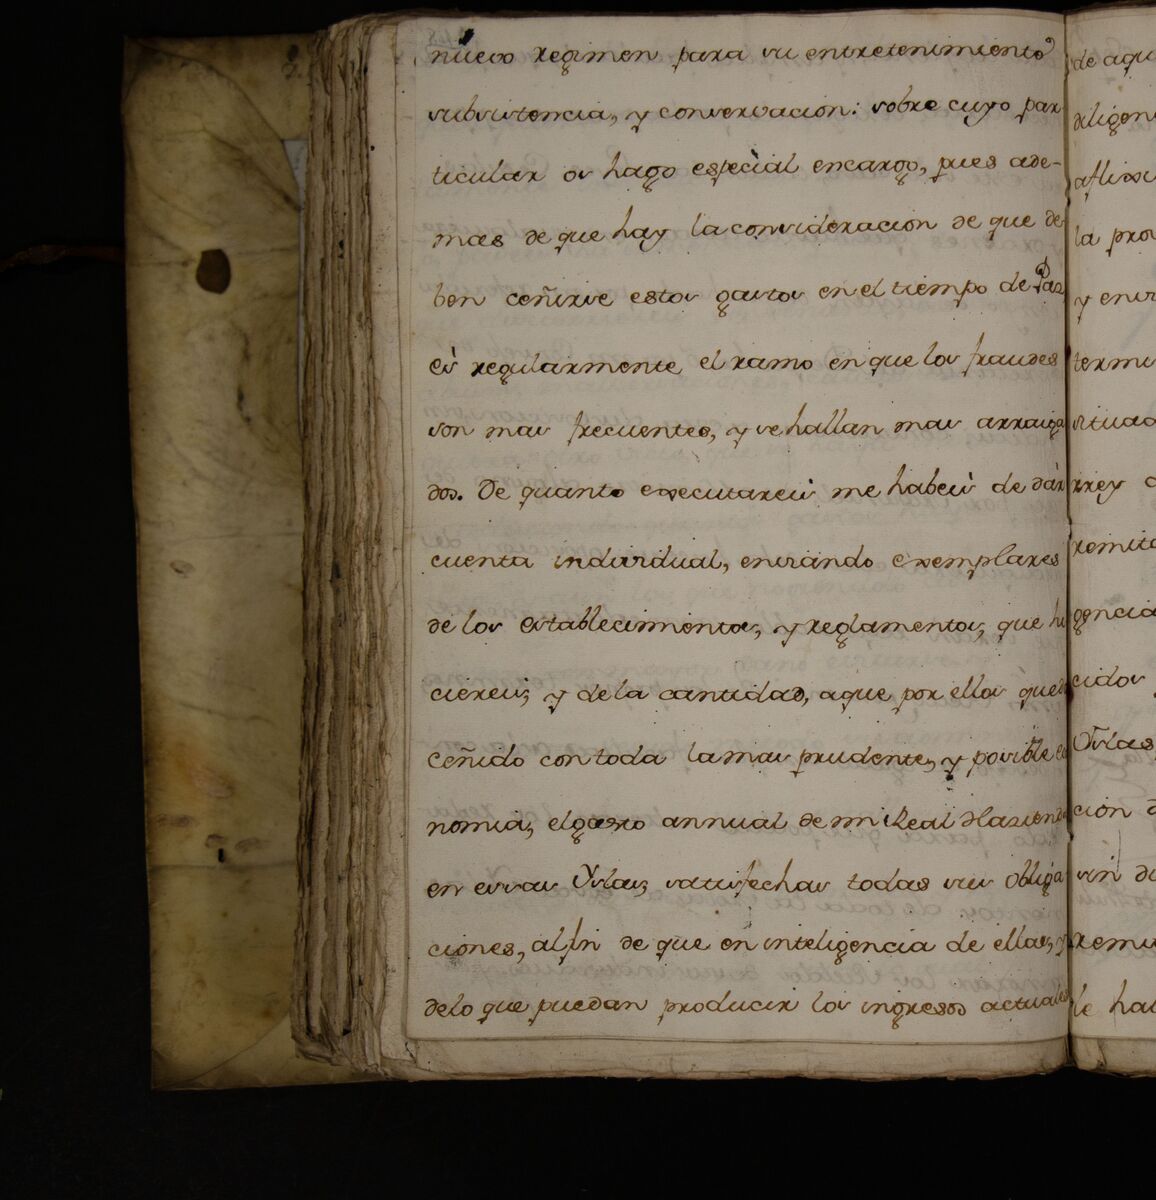 nuevo regimen para su entretenimiento
subsistencia, y conservacion: sobre cuyo par
ticular os hago espècial encargo, pues ade-
mas de que hay la consideracion de que de
ben ceñirse estos gastos en el tiempo de Paz
ès regularmente el ramo en que los fraudes
son mas frecuentes, y se hallan mas arraiga
dos. De quanto executareis me habeis de dàr
cuenta individual, enviando exemplares
de los establecimientos, y reglamentos, que hi
ciereis, y de la cantidad, a que por ellos queda
ceñido con toda la mas prudente, y posible eco
nomia, el gasto annual de mi Real Hazienda
en essas Yslas, satisfechas todas sus obliga
ciones, al fin de que en inteligencia de ellas, y
de lo que puedan producir los ingresos actuales
de aqu
diligen
aflixi
la prov
y
termi
situad
rrey
remit
gencia
cidos
Yslas
cion
sin
remi
le hai